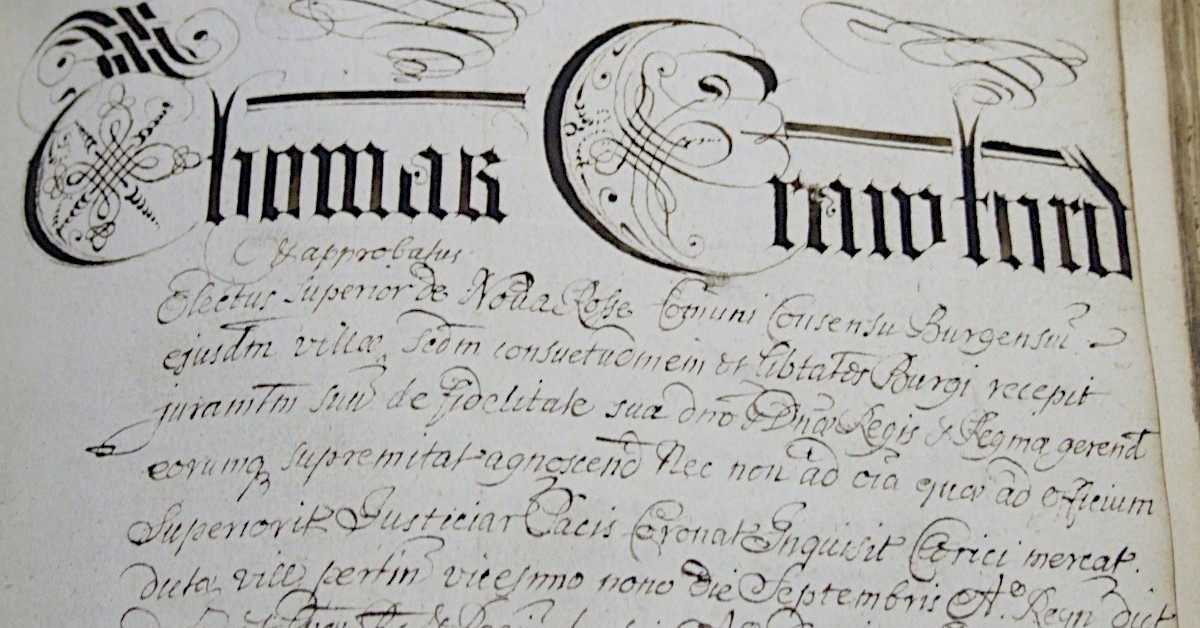 Thomas Crawford
& approbatus
Electus Superior de Nova Rosse Comuni Consensu Burgensiu
ejusdm villæ, Secdm consuetudinem et libtates Burgi recepit
juramtm suu de fidelitate sua dno & Dna Regis & Regina gerend
eorumq supremitat agnoscend Nec non ad oia quæ ad officium
Superiorit Justiciar Pacis Coronat Inquisit Clerici mercat.
dicta vill pertin vicesimo nono die Septembris Ao. Regn dict